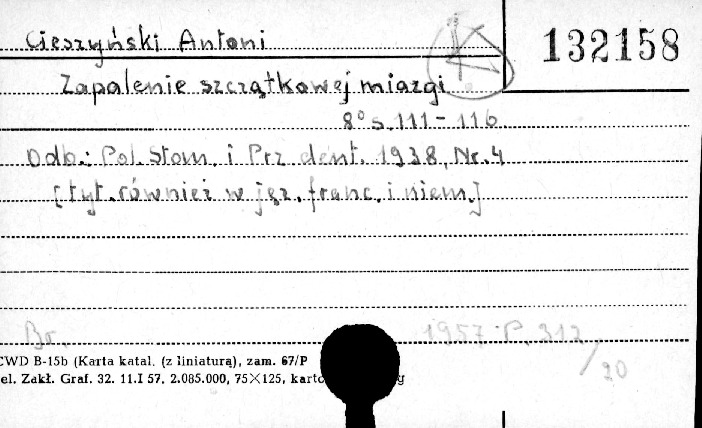 Cieszyński Antoni
132158
Zapalenie szczątkowej miazgi
8° s. 111-116
Odb.: Pol. Stom. i Prz. dent. 1938, Nr. 4
[tyt. również w jęz. franc. i niem.]
Br. 1957 P. 312/20
CWD B-15b (Karta katal. (z liniaturą), zam. 67/P
el. Zakł. Graf. 32. 11.I 57. 2.085.000, 75×125,